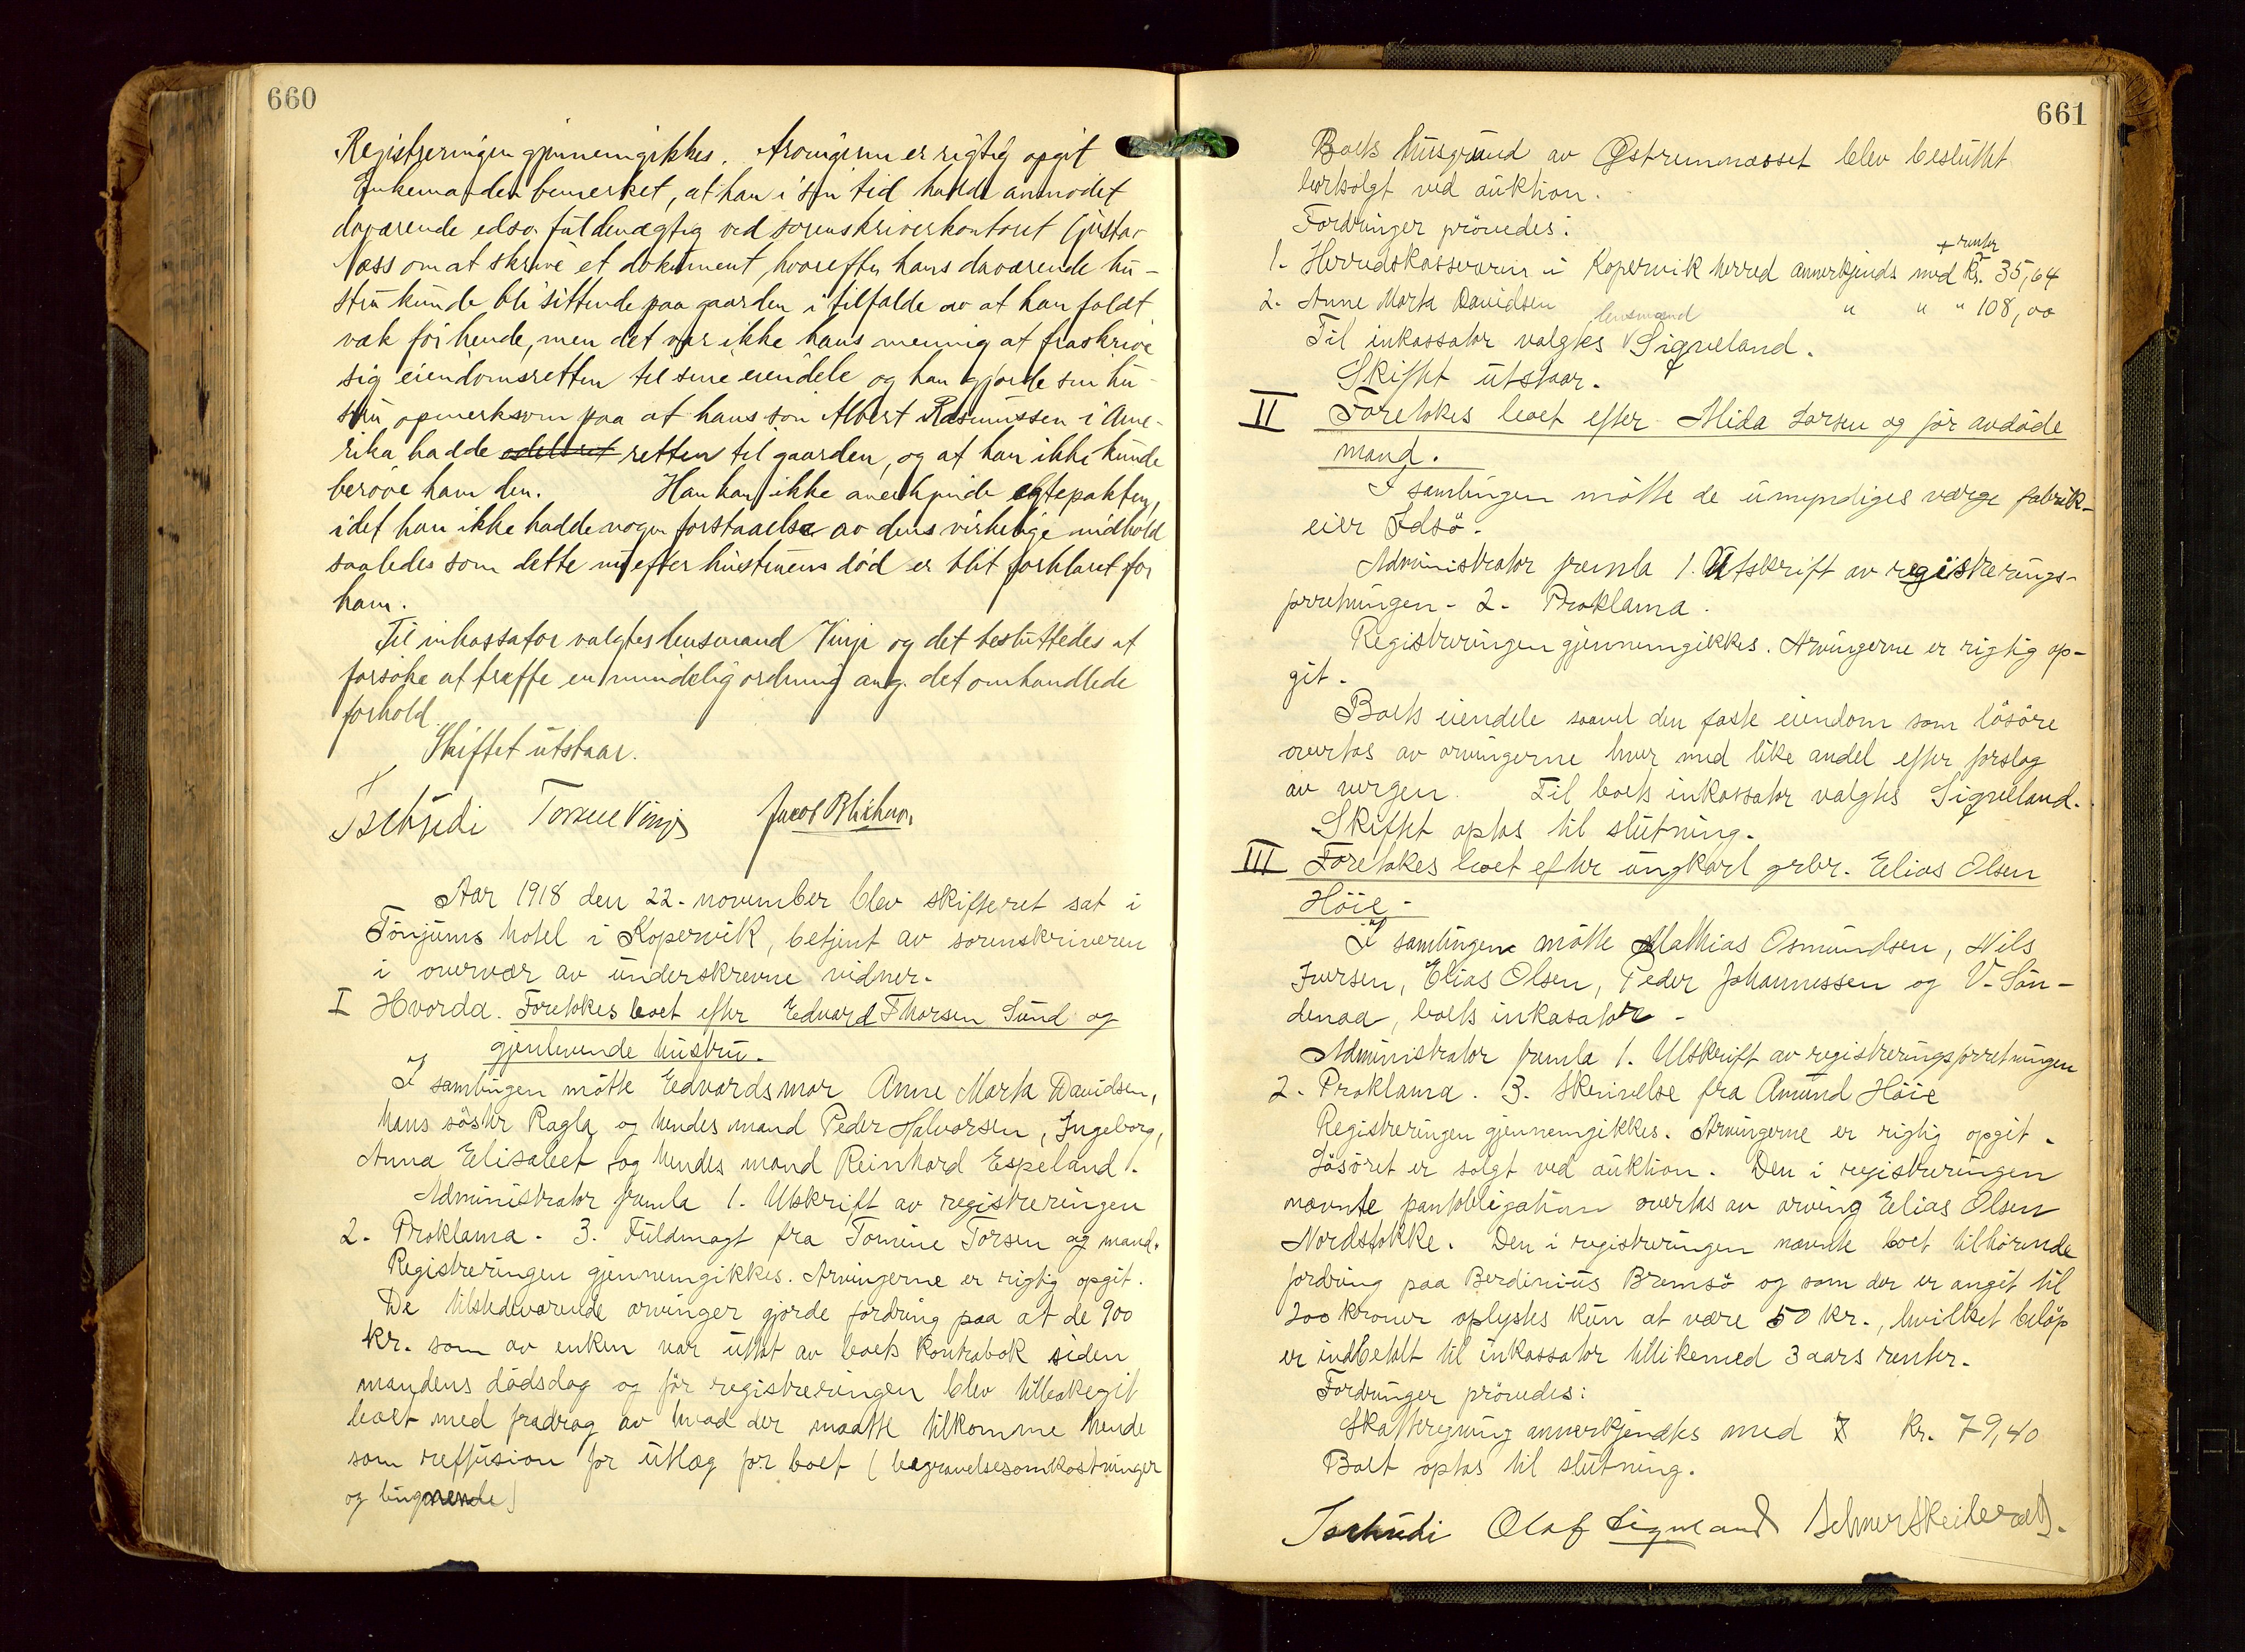 660
Registreringen gjennemgikkes. Arvingerne er rigtig opgit
Enkemanden bemerket, at han i sin tid hadde anmodet
daværende edsv. fuldmægtig ved sorenskriverkontoret Gustav
Næss om at skrive et dokument, hvorefter hans daværende hu-
stru kunde bli sittende paa gaarden i tilfælde av at han faldt
væk før hende, men det var ikke hans mening at fraskrive
sig eiendomsretten til sine eiendele og han gjorde sin hu-
stru opmerksom paa at hans søn Albert Rasmussen i Ame-
rika hadde odelsret retten til gaarden, og at han ikke kunde
berøve ham den. Han kan ikke anerkjende egtepakten,
idet han ikke hadde nogen forstaaelse av dens virkelige indhold
saaledes som dette nu efter hustruens död er blit forklaret for
ham.
Til inkassator valgtes lensmand Vinje og det besluttedes at
forsøke at træffe en mindelig ordning ang. det omhandlede
forhold.
Skiftet utstaar.
Tschudi Torkel Vinje Jacob Blikner.
Aar 1918 den 22. november blev skifteret sat i
Tönjums hotel i Kopervik, betjent av sorenskriveren
i overvær av underskrevne vidner.
I Hvorda. Foretokes boet efter Edvard Thorsen Sund og
gjenlevende hustru.
I samlingen mötte Edvards mor Anne Marta Davidsen,
hans söster Ragla og hendes mand Peder Halvorsen, Ingeborg,
Anna Elisabet og hendes mand Reinhard Espeland.
Administrator framla 1. Utskrift av registreringen
2. Proklama. 3. Fuldmagt fra Tomine Torsen og mand.
Registreringen gjennemgikkes. Arvingerne er rigtig opgit.
De tilstedeværende arvinger gjorde fordring paa at de 900
kr. som av enken var uttat av boets kontrabok siden
mandens dödsdag og för registreringen blev tilbakegit
boet med fradrag av hvad der maatte tilkomme hende
som reffusion for utlæg for boet (begravelsesomkostninger
og lignende)
661
Boets husgrund av Østremnæsset blev besluttet
bortsolgt ved auktion.
Fordringer prövedes:
+ renter
1. Herredskassereren i Kopervik herred annerkjendes med Kr. 35,64
2. Anne Marta Davidsen " " " 108,00
lensmand
Til inkassator valgtes V Sigveland.
Skiftet utstaar.
II Foretokes boet efter Alida Larsen og för avdöde
mand.
I samlingen mötte de umyndiges værge fabrik-
eier Idsö.
Administrator framla 1. Utskrift av registrerings-
forretningen - 2. Proklama.
Registreringen gjennemgikkes. Arvingerne er rigtig op-
git.
Boets eiendele saavel den faste eiendom som lösöre
overtas av arvingerne hver med like andel efter forslag
av vergen. Til boets inkassator valgtes Sigveland.
Skiftet optas til slutning.
III Foretokes boet efter ungkarl grbr. Elias Olsen
Höie.
I samlingen mötte Mathias Osmundsen, Nils
Iversen, Elias Olsen, Peder Johannessen og V. Sön-
denaa, boets inkasator.
Administrator framla 1. Utskrift av registreringsforretningen
2. Proklama. 3. Skrivelse fra Amund Höie
Registreringen gjennemgikkes. Arvingerne er rigtig opgit.
Lösöret er solgt ved auktion. Den i registreringen
nævnte pantobligation overtas av arving Elias Olsen
Nordstokke. Den i registreringen nævnte boet tilhörende
fordring paa Berdinius Bremsö og som der er angit til
200 kroner oplystes kun at være 50 kr., hvilket belöp
er indbetalt til inkassator tillikemed 3 aars renter.
Fordringer prövedes:
Skatteregning annerkjendtes med Kr. 79,40
Boet optas til slutning.
Tschudi Olaf Sigveland